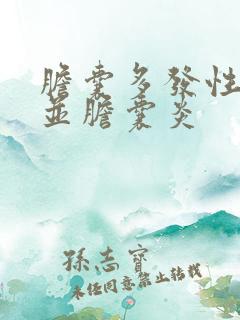 膽囊多發性
並膽囊炎
孫志寶
未经同意禁止转载